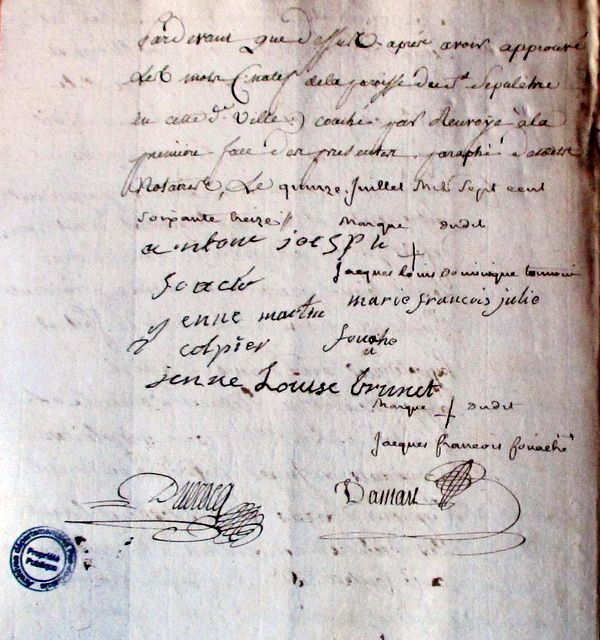 Pardevant que dessus après avoir approuvé
Les mots (natif de la paroisse du St Sépulchre
en cette de Ville) couché par Renvoye à la
première face d'es présentes, paraphé
Notaires, Le quinze Juillet Mil Sept cent
soixante treize // Marque dudit
antoine joesph
Jacques louis Dominique
foache
marie francois julie
jenne martin
colpier fouache
jenne Louise brunet
Marque dudit
Jacques francois fouache
Ducrocq Damart
Archives départementales
Propriété
Publique